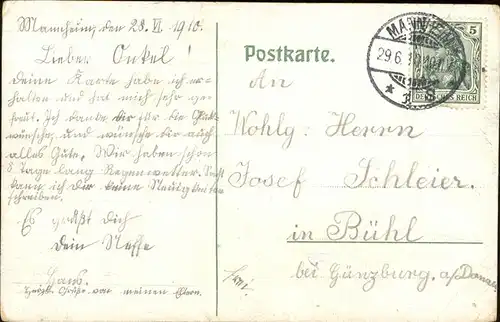 Mannheim, den 28. VI. 1910.
Lieber Onkel!
Deine Karte habe ich er-
halten und hat mich sehr ge-
freut. Ich danke dir für die Glück-
wünsche, und wünsche dir auch
alles Gute. Wir haben schon
8 Tage lang Regenwetter. Sonst
kann ich dir keine Neuigkeiten
schreiben.
Es grüßt dich
dein Neffe
Hans.
Herzl. Grüße von meinen Eltern.
Postkarte.
An
Wohlg. Herrn
Josef Schleier.
in Bühl
bei Günzburg. a/Donau.
MANNHEIM
29.6.
5
DEUTSCHES REICH